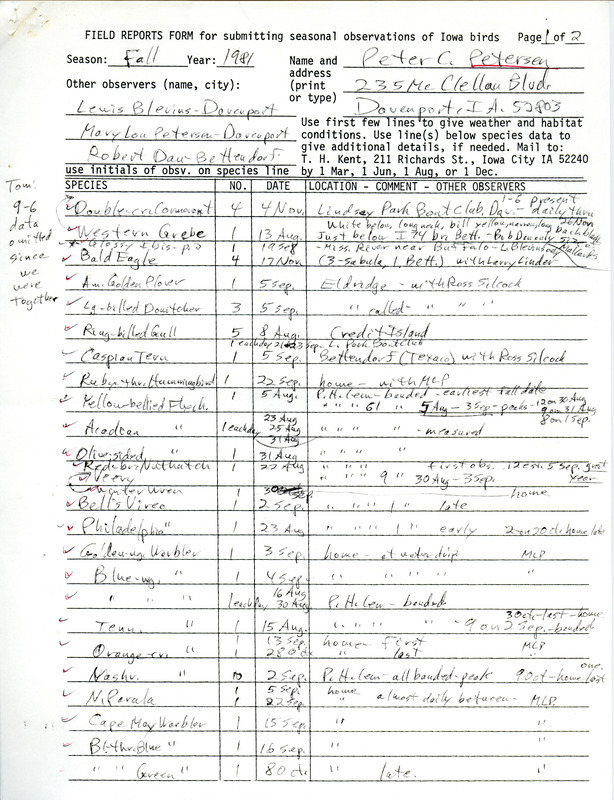 FIELD REPORTS FORM for submitting seasonal observations of Iowa birds Page 1 of 2
Season: Fall Year: 1981 Name and address (print or type) Peter C. Petersen
235 McClellan Blvd.
Davenport, IA. 52803
Other observers (name, city):
Lewis Blevins-Davenport
Mary Lou Petersen-Davenport
Robert Dau-Bettendorf
use initials of obsv. on species line
Use first few lines to give weather and habitat
conditions. Use line(s) below species data to
give additional details, if needed. Mail to:
T. H. Kent, 211 Richards St., Iowa City IA 52240
by 1 Mar, 1 Jun, 1 Aug, or 1 Dec.
Tom:
9-6
data
omitted
since
we
were
together
SPECIES NO. DATE LOCATION - COMMENT - OTHER OBSERVERS
Double-cr. Cormorant 4 4 Nov. Lindsay Park Boat Club, Dav. - daily thru 26 Nov 1-6 present
White below, long neck, bill yellow, narrow, long
Western Grebe 1 13 Aug. Just below I 74 br, Bett. - Bob Dau only
Glossy Ibis 1 19 Sep - Miss. River near Buffalo - L. Blevins
Bald Eagle 4 17 Nov (3-Sabula, 1 Bett.) with Larry Linder
Am. Golden Plover 1 5 Sep. Eldridge - with Ross Silcock
Lg-billed Dowitcher 3 5 Sep. " called- " "
Ring-billed Gull 5 8 Aug. Credit Island
1 each day 21-23 Sep. L. Park Boat Club
Caspian Tern 1 5 Sep. Bettendorf (Texaco) with Ross Silcock
Ruby-thr. Hummingbird 1 22 Sep. home - with MLP
Yellow-bellied Flych. 1 5 Aug. P. H. elem - banded - earliest fall date
" " " 61 " 5 Aug - 3 Sep - peaks - 12 on 30 Aug
9 on 31 Aug
8 on 1 Sep.
Acadean " 1 each day 23 Aug 25 Aug 31 Aug " " " - measured
Olive-sided " 1 31 Aug " " "
Red-br. Nuthatch 1 22 Aug " " " first obs. 12 est. 5 Sep. great year
Veery " " " 9 " 30 Aug - 3 Sep.
Winter Wren 1 home
Bell's Vireo 1 2 Sep. " " " 1 " late
Philadelphia " 1 23 Aug " " " 1 " early 2 on 2 Oct home late
Golden-wg. Warbler 1 3 Sep. home - at water drip MLP
Blue-wg. " 1 4 Sep. " " " "
" " " 1 each day 16 Aug 30 Aug P. H. elem - banded
Tenn. " 1 15 Aug. " " " - 9 on 2 Sep. - banded 3 Oct - last - home
Orange-cr. " 1 13 Sep. home - first MLP
1 28 Oct " last "
Nashv. " 10 2 Sep. P. H. elem - all banded - peak 9 Oct - home last one.
N. Parula 1 5 Sep. home almost daily between - MLP
1 22 Sep.
Cape May Warbler 1 15 Sep. " "
Bl-thr. Blue " 1 16 Sep. " "
" " Green " 1 8 Oct. " late. "